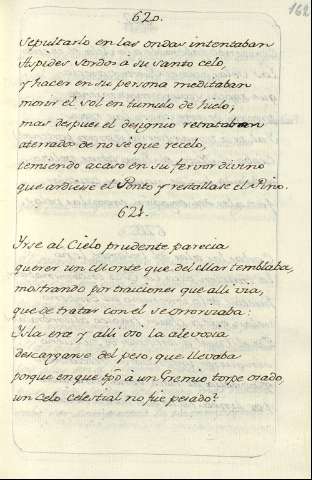 162
620.
Sepultarlo en las ondas intentaban
Aspides sordos à su santo celo,
y hacer en su persona meditaban
morir el sol en tumulo de hielo;
mas despues el designio retrataban
aterrado de no sé que recelo,
temiendo acaso en su fervor divino
que ardiese el Ponto y restallase el Pino.
621.
Yrse al Cielo prudente parecia
querer un Monte que del Mar temblaba,
mostrando por traiciones que alli via,
que de tratar con el se
Isla era y alli osó la alevosia
descargarse del peso, que llevaba
porque en que tpõ à un Gremio torpe osado,
un celo celestial no fue pesado?